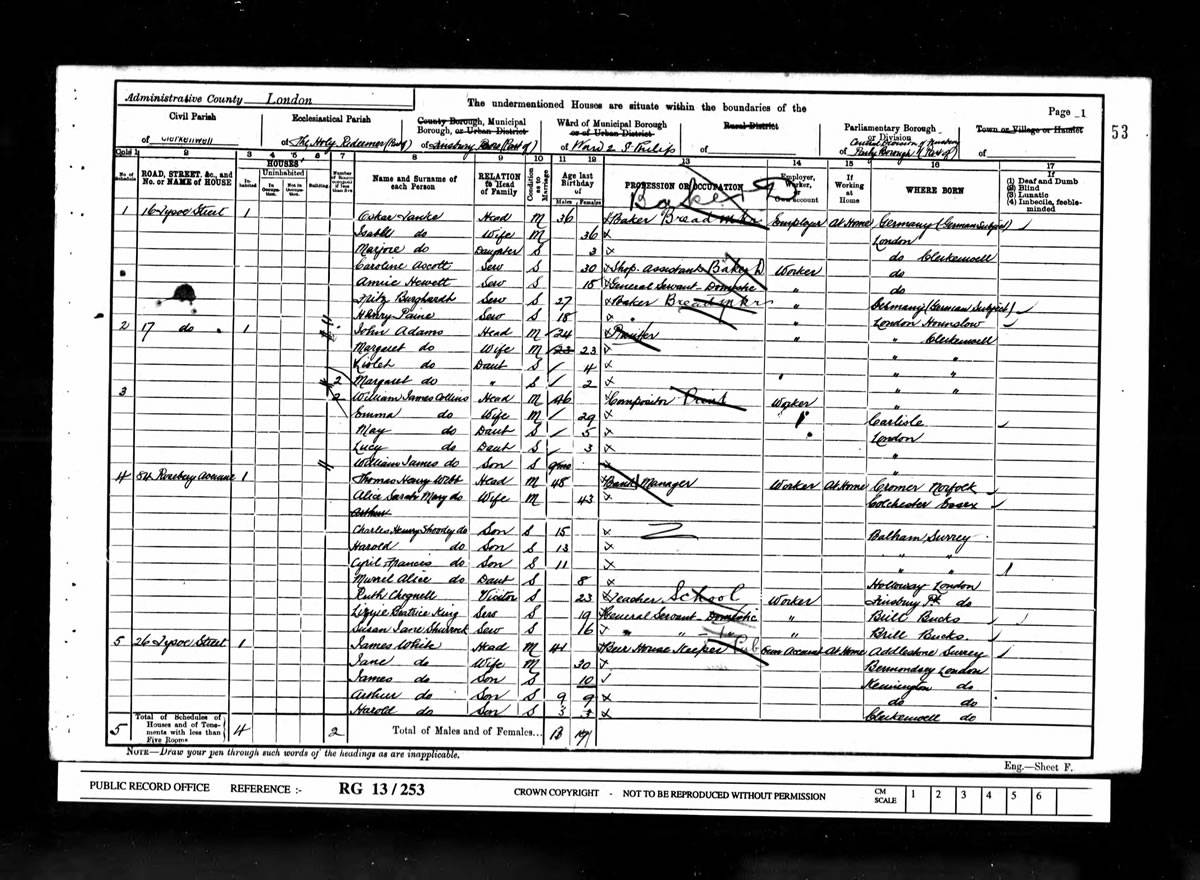 Administrative County London
The undermentioned Houses are situate within the boundaries of the
Page 1
53
Civil Parish
of Clerkenwell
Ecclesiastical Parish
of The Holy Redeemer (Part of)
County Borough, Municipal Borough, or Urban District
of Finsbury Boro (Part of)
Ward of Municipal Borough or of Urban District
of Ward 2 St Philip
Rural District
of
Parliamentary Borough or Division
of Central Division of Finsbury Parly Borough (Part of)
Town or Village or Hamlet
of
Cols 1 2 3 4 5 6 7 8 9 10 11 12 13 14 15 16 17
No. of Schedule
ROAD, STREET, &c., and No. or NAME of HOUSE
HOUSES
Inhabited
Uninhabited
In Occupation.
Not in Occupation.
Building
Number of Rooms occupied if less than five
Name and Surname of each Person
RELATION to Head of Family
Condition as to Marriage
Age last Birthday of
Males Females
PROFESSION OR OCCUPATION
Employer, Worker, or Own account
If Working at Home
WHERE BORN
(1) Deaf and Dumb
(2) Blind
(3) Lunatic
(4) Imbecile, feeble-minded
Baker
1 16 Tysoe Street 1 Head M 36 Baker Bread Employer At Home Germany (German Subject)
do Wife M 36 London
do Daughter S 3 do Clerkenwell
Caroline Ascott Serv S 30 Shop Assistant Baker Worker do
Annie Hewett Serv S 18 General Servant Domestic " do
Fritz Burghardt Serv S 27 Baker Bread " Germany (German Subject)
Henry Paine Serv S 18 " " London Hounslow
2 17 do 1 John Adams Head M 24 " " Clerkenwell
Margaret do Wife M 23 23 " "
Violet do Daut S 4 " "
2 Margaret do " S 2 " "
3 2 William James Collins Head M 46 Compositor Print Worker "
Emma do Wife M 29 Carlisle
May do Daut S 5 London
Lucy do Daut S 3 "
William James do Son S 9mo "
4 84 Rosebery Avenue 1 Thomas Henry Webb Head M 48 Bank Manager Worker At Home Cromer Norfolk
Alice Sarah Mary do Wife M 43 Colchester Essex
Arthur
Charles Henry do Son S 15 Balham, Surrey
Harold do Son S 13 " "
Cyril Francis do Son S 11 " "
Alice do Daut S 8 Holloway London
Ruth Visitor S 23 Teacher School Worker Finsbury Pk do
Lizzie Beatrice King Serv S 19 General Servant Domestic " Brill Bucks
Susan Jane Serv S 16 " " " Brill Bucks.
5 26 Tysoe Street 1 James White Head M 41 Beer House Keeper Pub Own Account At Home Addlestone Surrey
Jane do Wife M 30 Bermondsey London
James do Son S 10 Kennington do
Arthur do Son S 9 9 do do
Harold do Son S 3 3 Clerkenwell do
5 Total of Schedules of Houses and of Tenements with less than Five Rooms 4 2 Total of Males and of Females... 13
NOTE—Draw your pen through such words of the headings as are inapplicable.
Eng.—Sheet F.
PUBLIC RECORD OFFICE REFERENCE :- RG 13/253 CROWN COPYRIGHT - NOT TO BE REPRODUCED WITHOUT PERMISSION CM SCALE 1 2 3 4 5 6